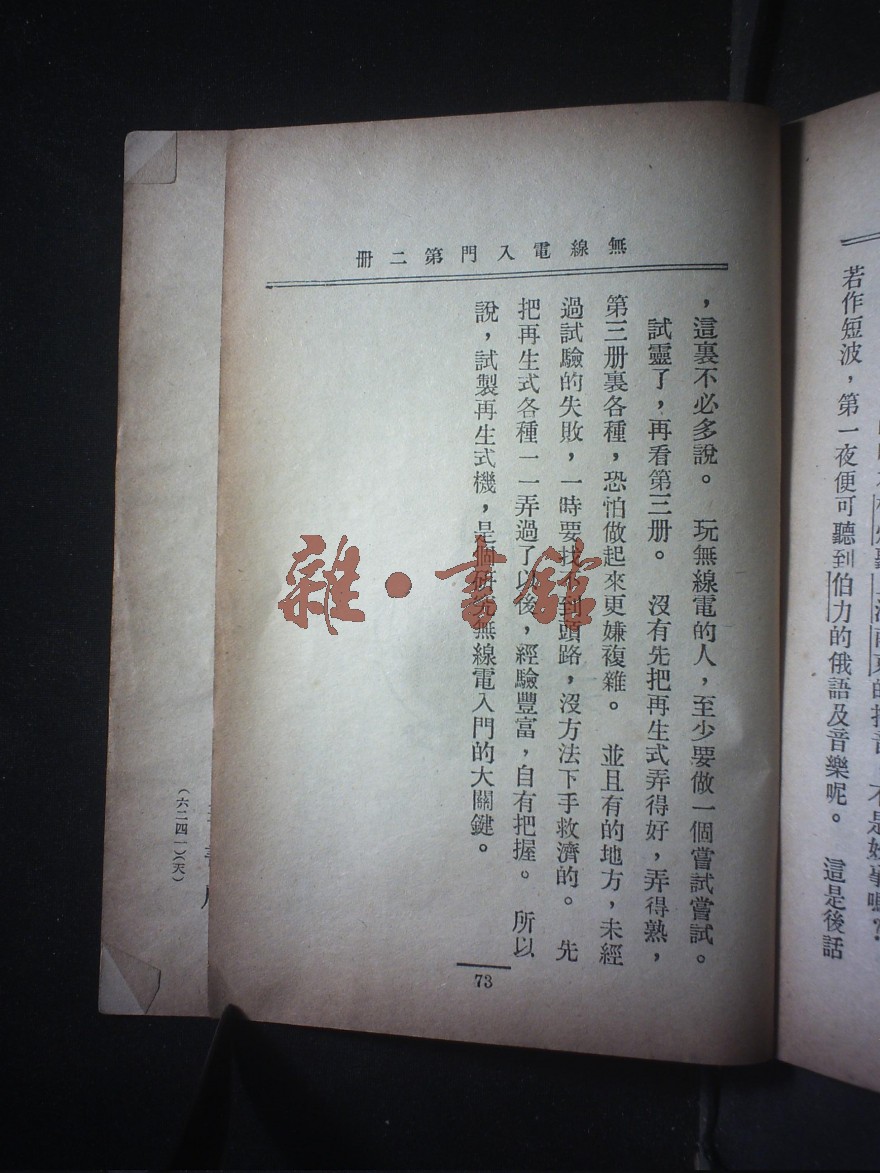 若作短波，第一夜便可聽到伯力的俄語及音樂呢。 這是後話
無線電入門第二册
，這裏不必多說。 玩無線電的人，至少要做一個嘗試嘗試。
試靈了，再看第三册。 沒有先把再生式弄得好，弄得熟，
第三册裏各種，恐怕做起來更嫌複雜。 並且有的地方，未經
過試驗的失敗，一時要找不到頭路，沒方法下手救濟的。 先
把再生式各種一一弄過了以後，經驗豐富，自有把握。 所以
說，試製再生式機，是個研究無線電入門的大關鍵。
73
(六二四一)(天)
雜·書館